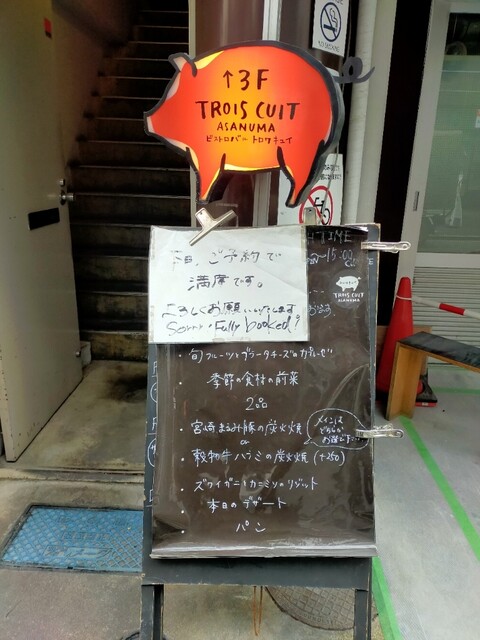 ↑3F
TROIS CUIT
ASANUMA
ビストロバー トロワキュイ
本日、ご予約で
満席です。
よろしくお願いいたします
Sorry. Fully booked!
TIME
15:00
TROIS CUIT
ASANUMA
・旬フルーツとブラータチーズのカプレーゼ
季節の食材の前菜
2品
・宮崎まるみ豚の炭火焼
or
・穀物牛ハラミの炭火焼 (+250)
メインは
どちらか
お選び下さい
・ズワイガニとカニミソのリゾット
・本日のデザート
・パン
NO SMOKING